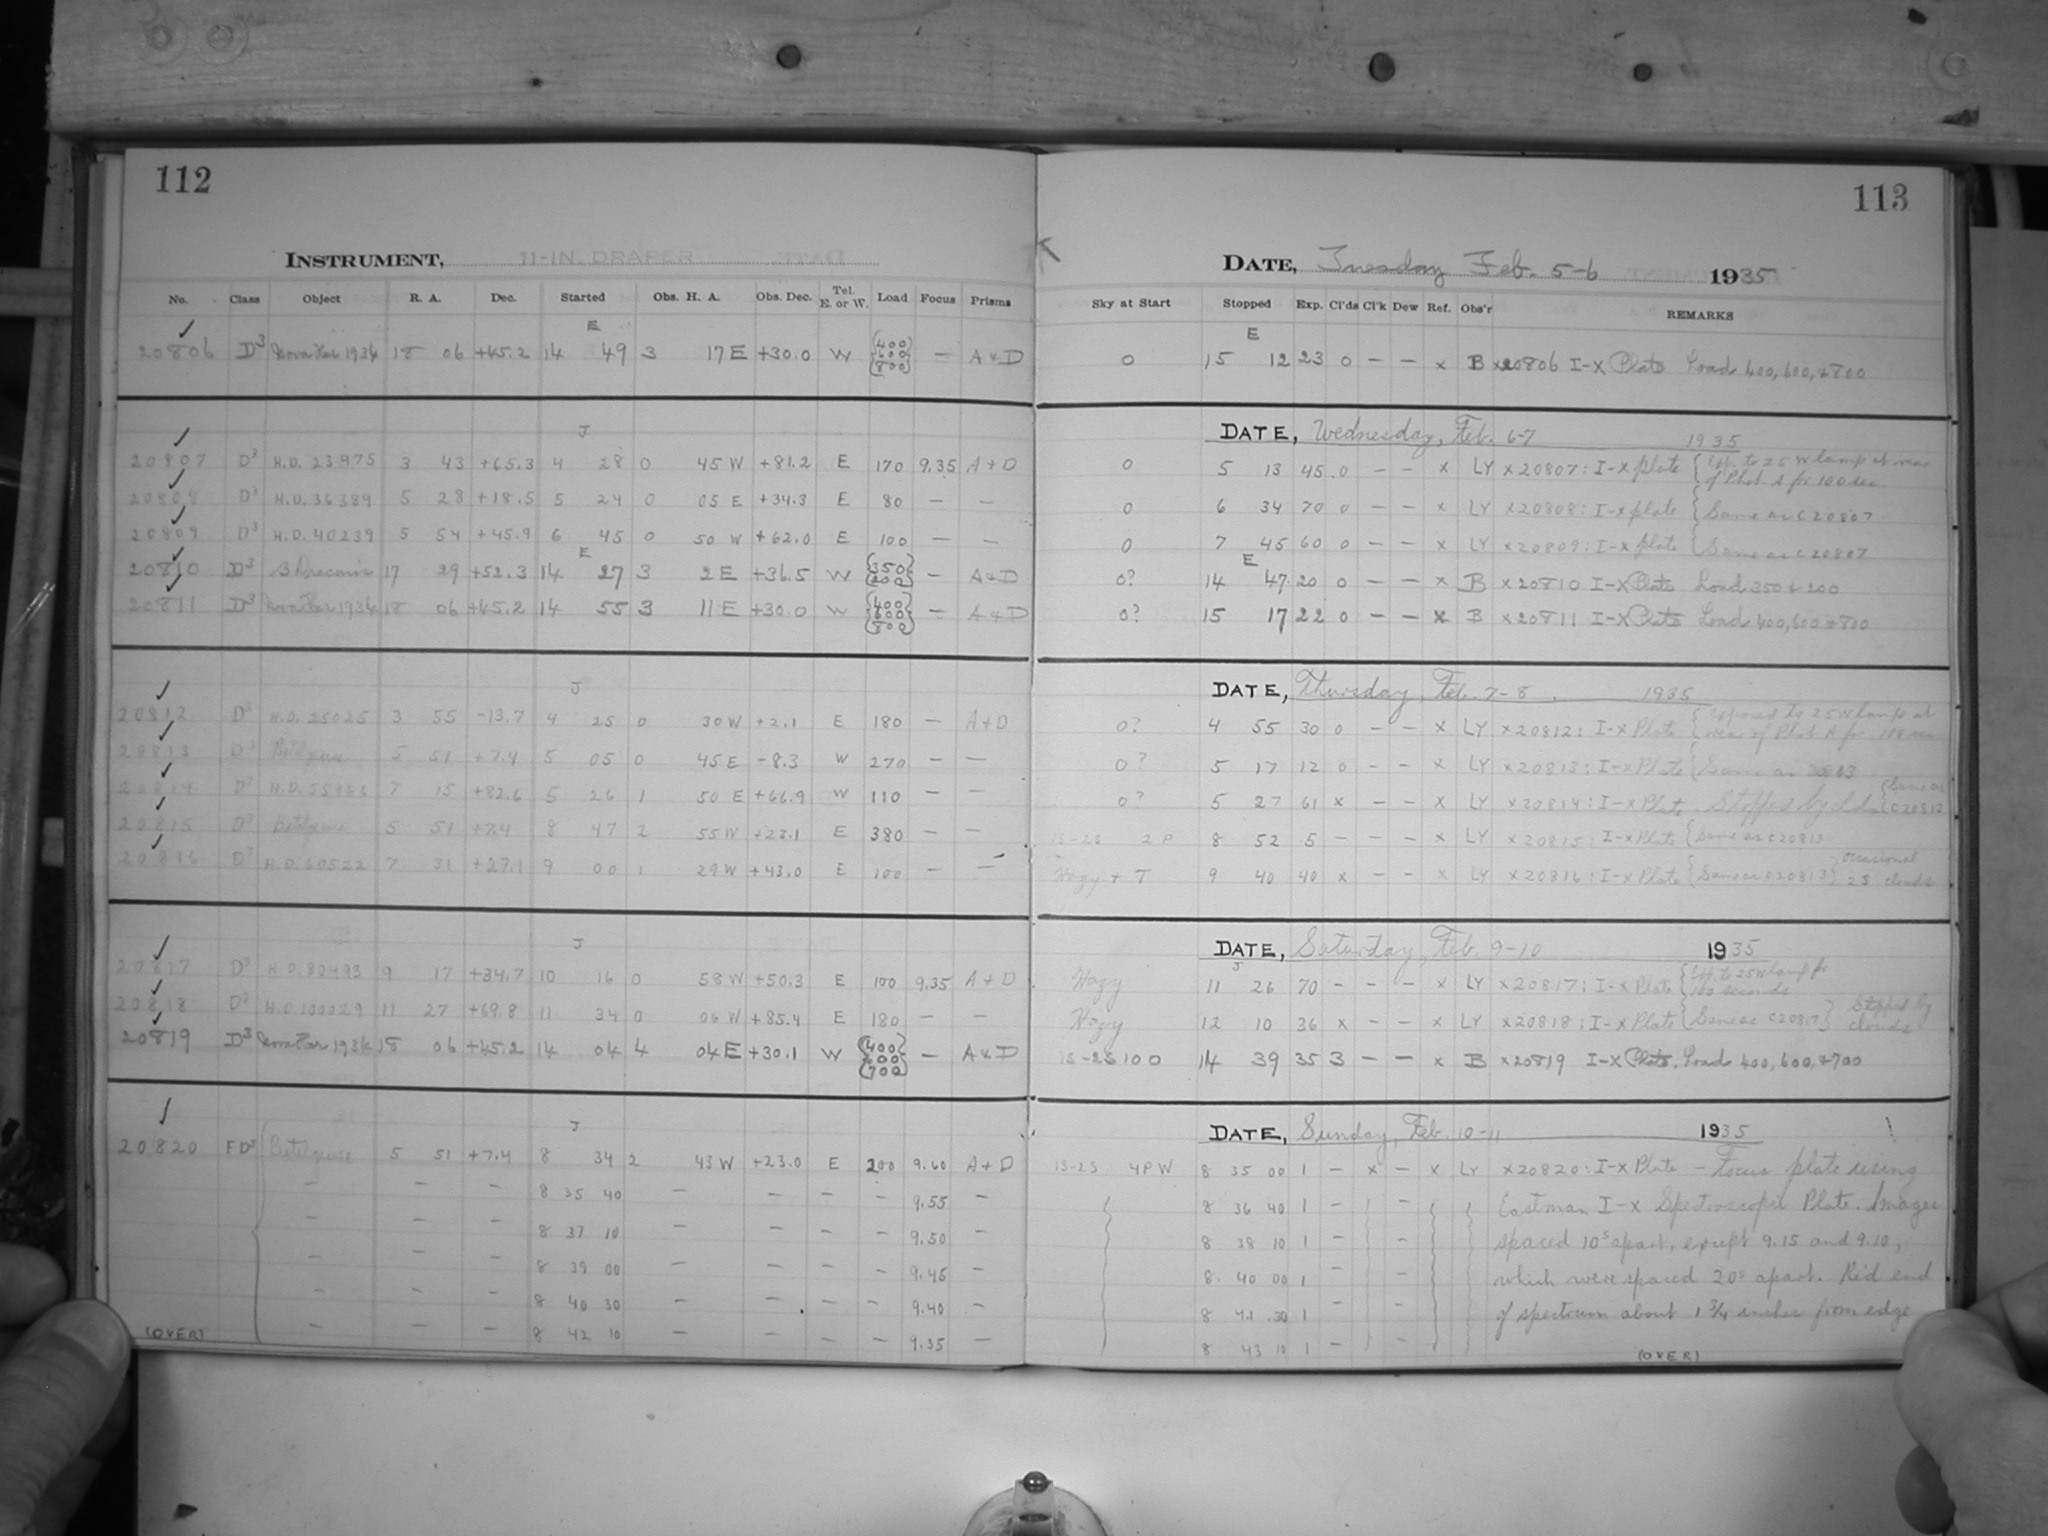 112
INSTRUMENT, 11-IN. DRAPER
No. Class Object R. A. Dec. Started Obs. H. A. Obs. Dec. Tel. E. or W. Load Focus Prisms
E
20806 D3 Nova Her 1934 18 06 +45.2 14 49 3 17 E +30.0 W {400 600 800} — A & D
J
20807 D3 H.D. 23975 3 43 +65.3 4 28 0 45 W +81.2 E 170 9.35 A + D
20808 D3 H.D. 36389 5 28 +18.5 5 24 0 05 E +34.3 E 80 — —
20809 D3 H.D. 40239 5 54 +45.9 6 45 0 50 W +62.0 E 100 — —
E
20810 D3 β Draconis 17 29 +52.3 14 27 3 2 E +36.5 W {350 200} — A & D
20811 D3 Nova Her 1934 18 06 +45.2 14 55 3 11 E +30.0 W {400 600 800} — A & D
J
20812 D3 H.D. 25025 3 55 -13.7 4 25 0 30 W +2.1 E 180 — A + D
20813 D3 Betelgeuse 5 51 +7.4 5 05 0 45 E -8.3 W 270 — —
20814 D3 7 15 +82.6 5 26 1 50 E +66.9 W 110 — —
20815 D3 Betelgeuse 5 51 +7.4 8 47 2 55 W +23.1 E 380 — —
20816 D3 H.D. 60522 7 31 +27.1 9 00 1 29 W +43.0 E 100 — —
J
20817 D3 H.D. 80493 9 17 +34.7 10 16 0 58 W +50.3 E 100 9.35 A + D
20818 D3 H.D. 100029 11 27 +69.8 11 34 0 06 W +85.4 E 180 — —
20819 D3 Nova Her 1934 18 06 +45.2 14 04 4 04 E +30.1 W {400 600 700} — A & D
J
20820 FD3 Betelgeuse 5 51 +7.4 8 34 2 43 W +23.0 E 200 9.60 A + D
— — — 8 35 40 — — — — 9.55 —
— — — 8 37 10 — — — — 9.50 —
— — — 8 39 00 — — — — 9.45 —
— — — 8 40 30 — — — — 9.40 —
— — — 8 42 10 — — — — 9.35 —
(OVER)
113
DATE, Tuesday Feb. 5-6 1935
Sky at Start Stopped Exp. Cl'ds Cl'k Dew Ref. Obs'r REMARKS
E
0 15 12 23 0 — — x B x20806 I-X Plate Load 400, 600, & 800
DATE, Wednesday, Feb. 6-7 1935
0 5 13 45 0 — — x LY x20807: I-x plate {Exp. to 25 W lamp at rear of Phot. A for 100 sec.
0 6 34 70 0 — — x LY x20808: I-x plate {Same as C20807
0 7 45 60 0 — — x LY x20809: I-x plate {Same as C20807
E
0? 14 47 20 0 — — x B x20810 I-X Plate Load 350 & 200
0? 15 17 22 0 — — x B x20811 I-X Plate Load 400, 600 & 800
DATE, Thursday, Feb. 7-8 1935
0? 4 55 30 0 — — x LY x20812: I-x Plate {Exposed to 25 W lamp at rear of Phot A for 100 sec
0? 5 17 12 0 — — x LY x20813: I-x Plate {Same as
0? 5 27 61 x — — x LY x20814: I-x Plate. Stopped by clds {Same as C20812
1S-2S 2 P 8 52 5 — — — x LY x20815: I-x Plate {Same as C20813
Hazy + T 9 40 40 x — — x LY x20816: I-x Plate {Same as C20813} Occasional 2S clouds
DATE, Saturday, Feb. 9-10 1935
J
Hazy 11 26 70 — — — x LY x20817: I-x Plate {Exp. to 25 W lamp for 100 seconds
Hazy 12 10 36 x — — x LY x20818: I-x Plate {Same as C20817} Stopped by clouds
1S-2S 100 14 39 35 3 — — x B x20819 I-X Plate. Load 400, 600, & 700
DATE, Sunday, Feb. 10-11 1935
1S-2S 4PW 8 35 00 1 — x — x LY x20820: I-x Plate — Focus plate using
8 36 40 1 — — Eastman I-X Spectroscopic Plate. Images
8 38 10 1 — — spaced 10s apart, except 9.15 and 9.10,
8 40 00 1 — — which were spaced 20s apart. Red end
8 41 30 1 — — of spectrum about 1 3/4 inches from edge
8 43 10 1 —
(OVER)